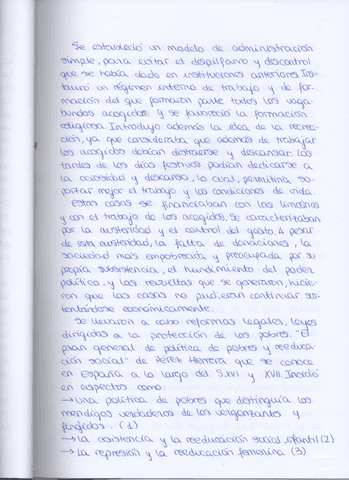 Se estableció un modelo de administración
simple, para evitar el despilfarro y descontrol
que se había dado en instituciones anteriores. Ins-
tauró un régimen interno de trabajo y de for-
mación del que formaron parte todos los vaga-
bundos acogidos y se favoreció la formación
religiosa. Introdujo además la idea de la recrea-
ción, ya que consideraba que además de trabajar
los acogidos debían distraerse y descansar. Las
tardes de los días festivos podían dedicarse a
la ociosidad y descanso, lo cual, permitiría so-
portar mejor el trabajo y las condiciones de vida.
Estas casas se financiaban con las limosnas
y con el trabajo de los acogidos. Se caracterizaban
por la austeridad y el control del gasto. A pesar
de esta austeridad, la falta de donaciones, la
sociedad más empobrecida y preocupada por su
propia subsistencia, el hundimiento del poder
político y las revueltas que se generaron, hicie-
ron que las casas no pudieran continuar sus-
tentándose económicamente.
Se llevaron a cabo reformas legales, leyes
dirigidas a la protección de los pobres. "El
plan general de política de pobres y reeduca-
ción social" de Pérez Herrera que se conoce
en España a lo largo del S.XVI y XVII. Incidió
en aspectos como:
→ Una política de pobres que distinguía los
mendigos verdaderos de los vergonzantes y
fingidos. (1)
→ La asistencia y la reeducación social infantil (2)
→ La represión y la reeducación femenina (3)